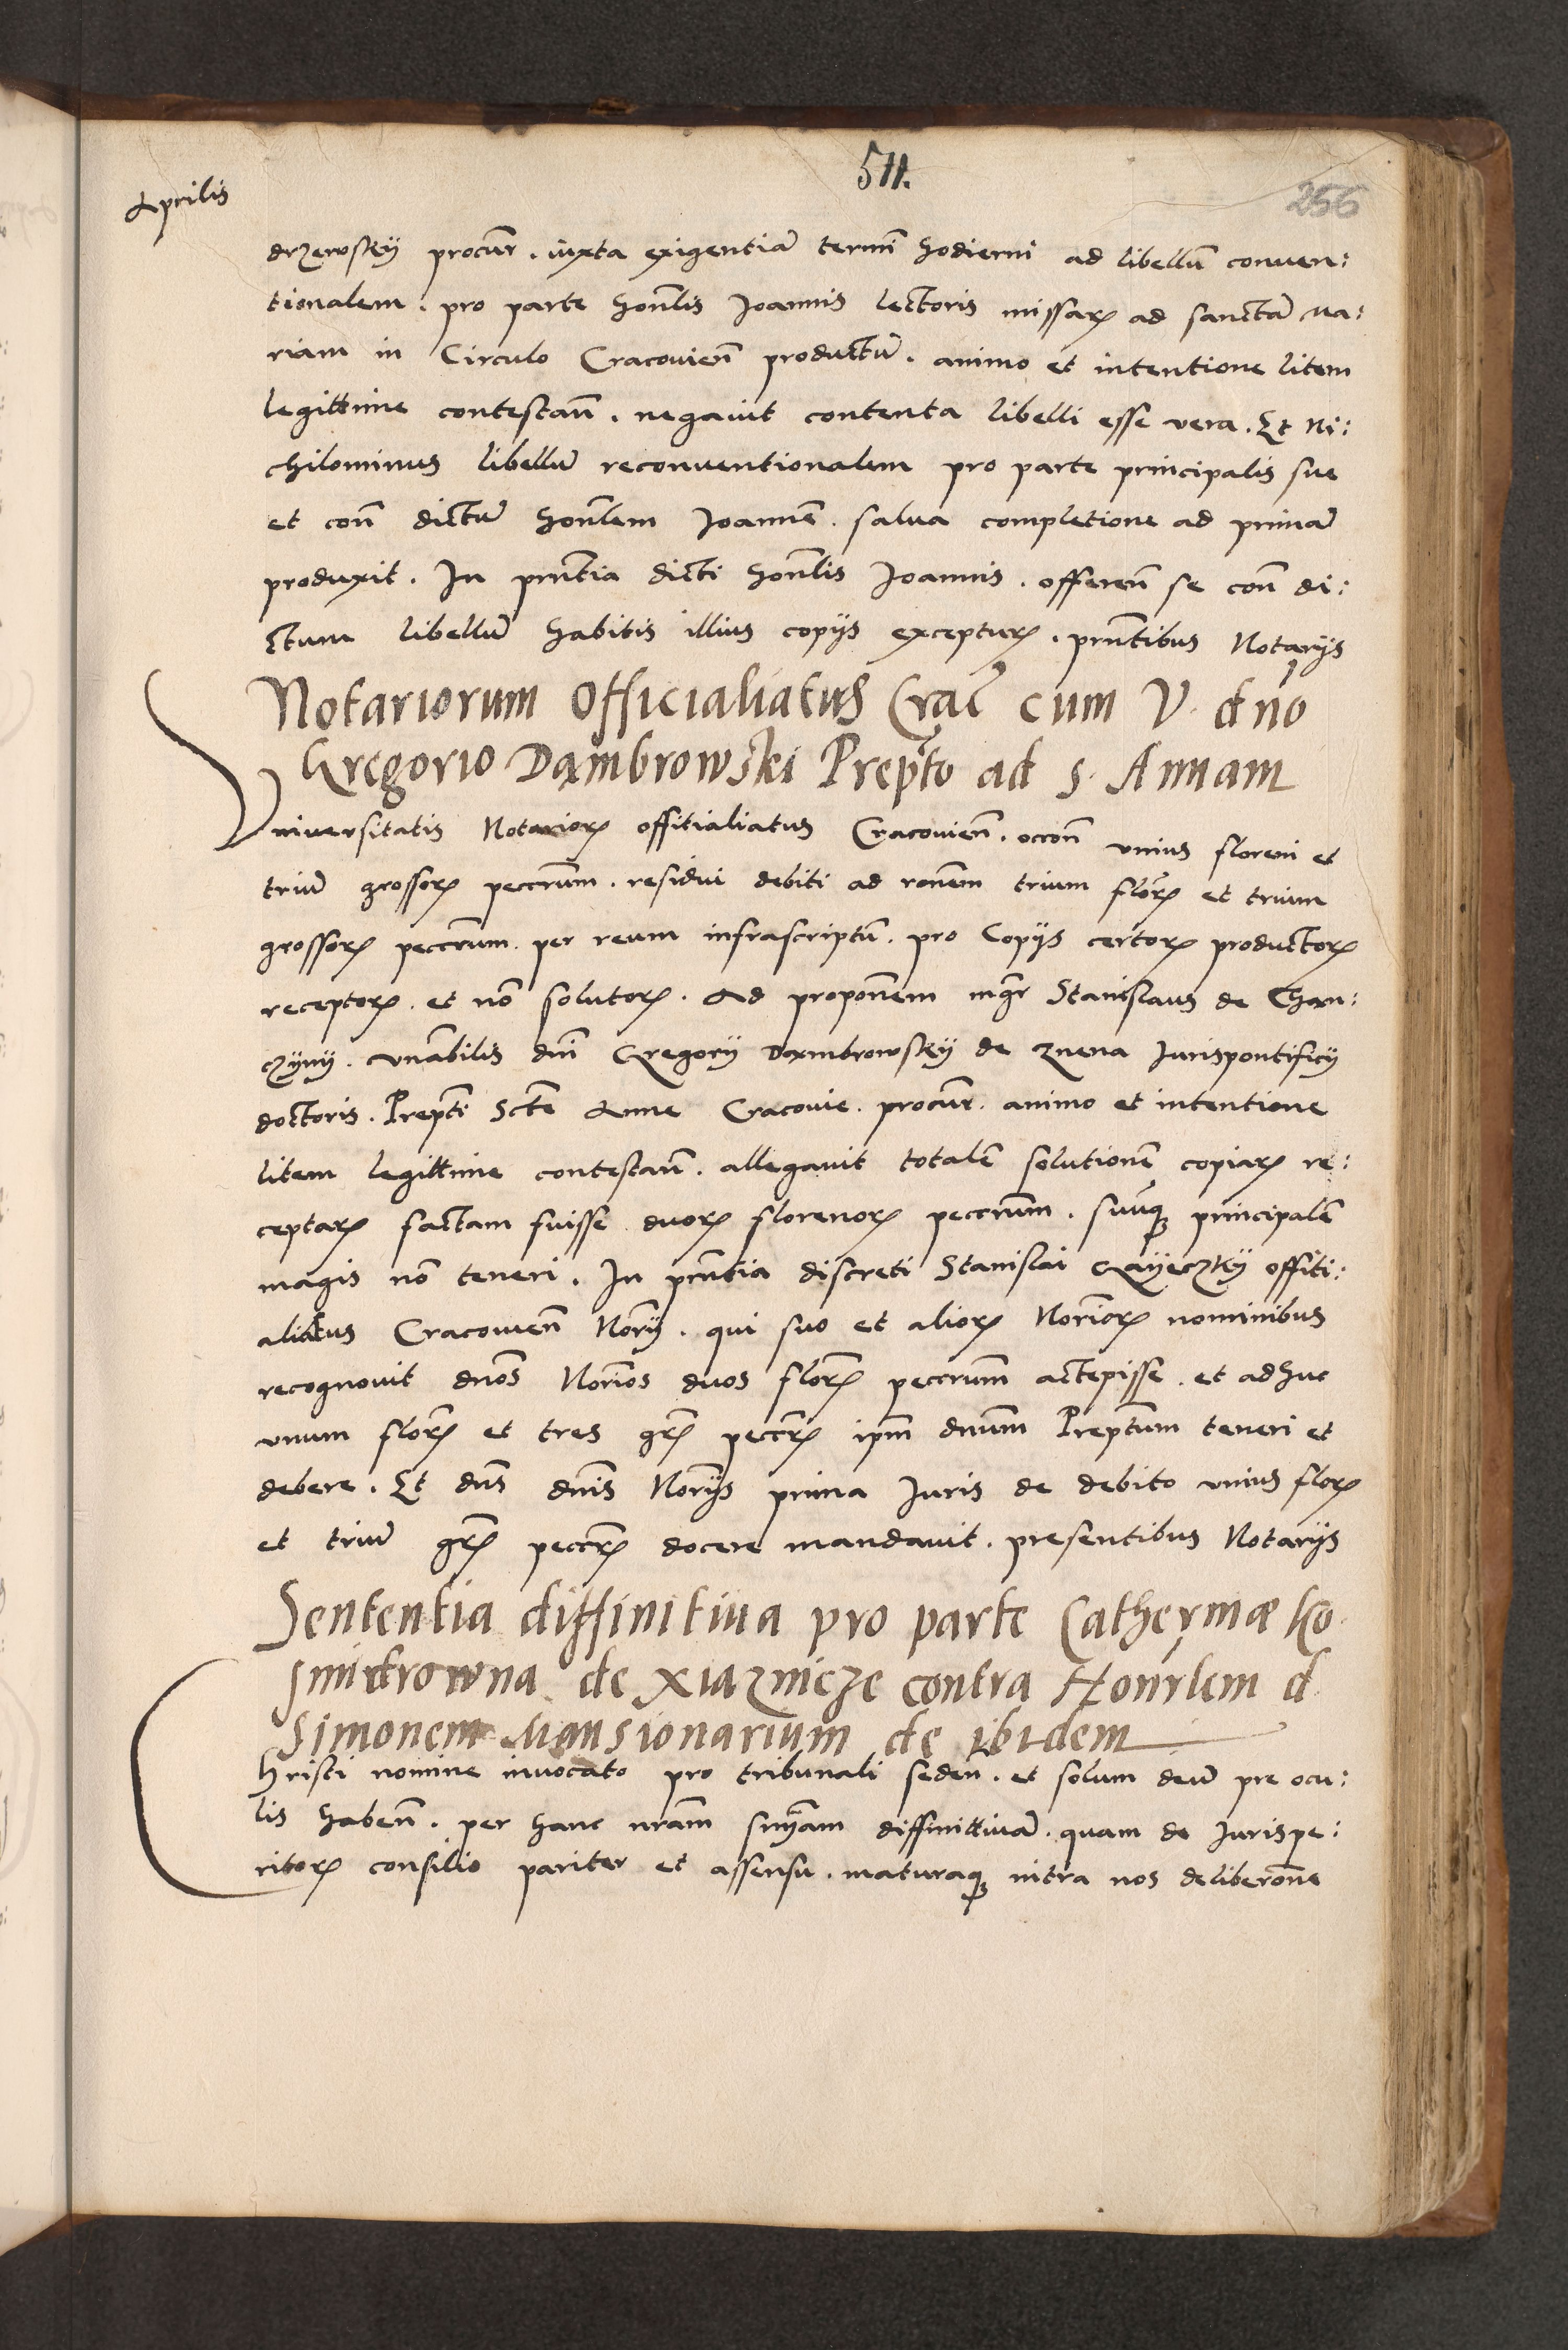 511.
256
Aprilis
drzewsky procur̄. iuxta exigentiā termī hodierni ad libellū conuen:
tionalem. pro parte hon̄lis Joannis lectoris missarꝝ ad sanctā Ma:
riam in Circulo Cracouien̄ productū. animo et intentione litem
legittime contestan̄. negauit contenta libelli esse vera. Et Ni:
chilominus libellū reconuentionalem pro parte principalis sue
et con̄ dictū hon̄lem Joannē. salua completione ad primā
produxit. In pn̄tia dicti hon̄lis Joannis. offeren̄ se con̄ di:
ctum libellū habitis illius copijs excepturꝝ. pn̄tibus Notarijs
Notariorum Officialiatus Crac̄ cum V. dn̄o
Gregorio Dąmbrowski Prep̄to ad S. Annam
Vniuersitatis Notariorꝝ offitialiatus Cracouien̄. occon̄ vnius floreni et
triū grossorꝝ peccūm. residui debiti ad ron̄em trium florꝝ et trium
grossorꝝ peccūm. per reum infrascriptū. pro Copijs certorꝝ productorꝝ
receptorꝝ. et nō solutorꝝ. Ad propon̄em mḡr Stanislaus de Chan:
czyny. vn̄abilis dn̄i Gregorij Dambrowsky de Znena Jurispontificij
doctoris. Prep̄ti Sc̄te Anne Cracouie. procur̄. animo et intentione
litem legittime contestan̄. allegauit totalē solutionē copiarꝝ re:
ceptarꝝ factam fuisse duorꝝ florenorꝝ peccūm. suūqꝫ principalē
magis nō teneri. In pn̄tia discreti Stanislai Gayeczky offiti:
aliatus Cracouien̄ Nor̄ij. qui suo et aliorꝝ Nor̄iorꝝ nominibus
recognouit dn̄os Nor̄ios duos florꝝ peccūm accepisse. et adhuc
vnum florꝝ et tres gr̄ꝝ peccꝝ ip̄m dn̄um Prep̄tum teneri et
debere. Et dn̄s dn̄is Nor̄ijs prima Juris de debito vnius florꝝ
et triū gr̄ꝝ peccꝝ docere mandauit. presentibus Notarijs
Sententia diffinitiua pro parte Catherinæ Ko
smidrowna de Xiaznicze contra Honrlem d.
Simonem Mansionarium de ibidem
Christi nomine inuocato pro tribunali seden̄. et solum deū pre ocu:
lis haben̄. per hanc nr̄am sn̄iam diffinittiuā. quam de Jurispe:
ritorꝝ consilio pariter et assensu. maturaqꝫ intra nos deliberon̄e